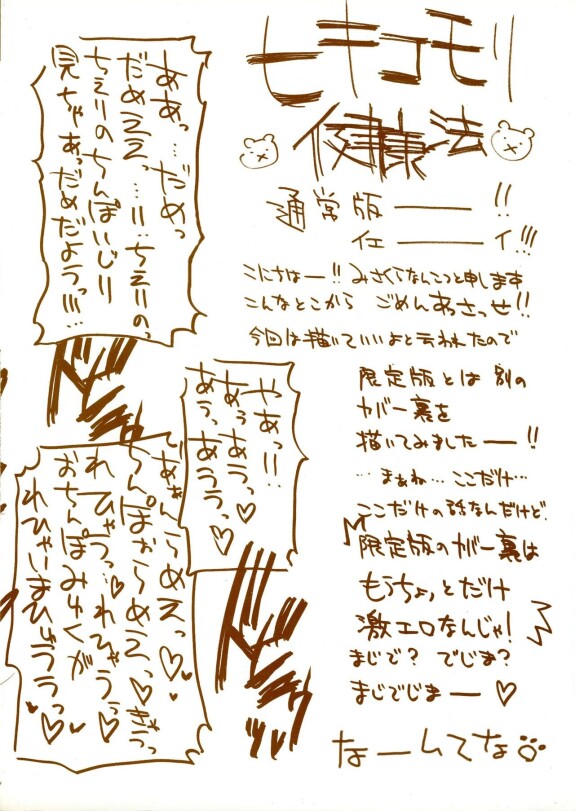 ヒキコモリ
健康法
通常版―――!!
イエ―――イ!!!
こにちはー!! みさくらなんこつと申します
こんなとこから ごめんあさっせ!!
今回は描いていいよと云われたので
限定版とは別の
カバー裏を
描いてみましたー!!
…まぁね…ここだけ…
ここだけの話なんだけど
限定版のカバー裏は
もうちょっとだけ
激エロなんじゃ!
まじで? でじま?
まじでじまー♡
なーんてな
ああっ…だめっ
だめええっ…!!…ちえりのっ
ちえりのちんぽいじり
見ちゃあっだめだようっ!!!…
やあっ!!
あぅあうっ♡
あうっあううっ♡
あぁんらめえっ♡
ちんぽぉらめえっ♡きゃうっ
れひゃうっ♡れひゃうぅ♡
おちんぽみゆくが
れひゃいまひゅううっ♡